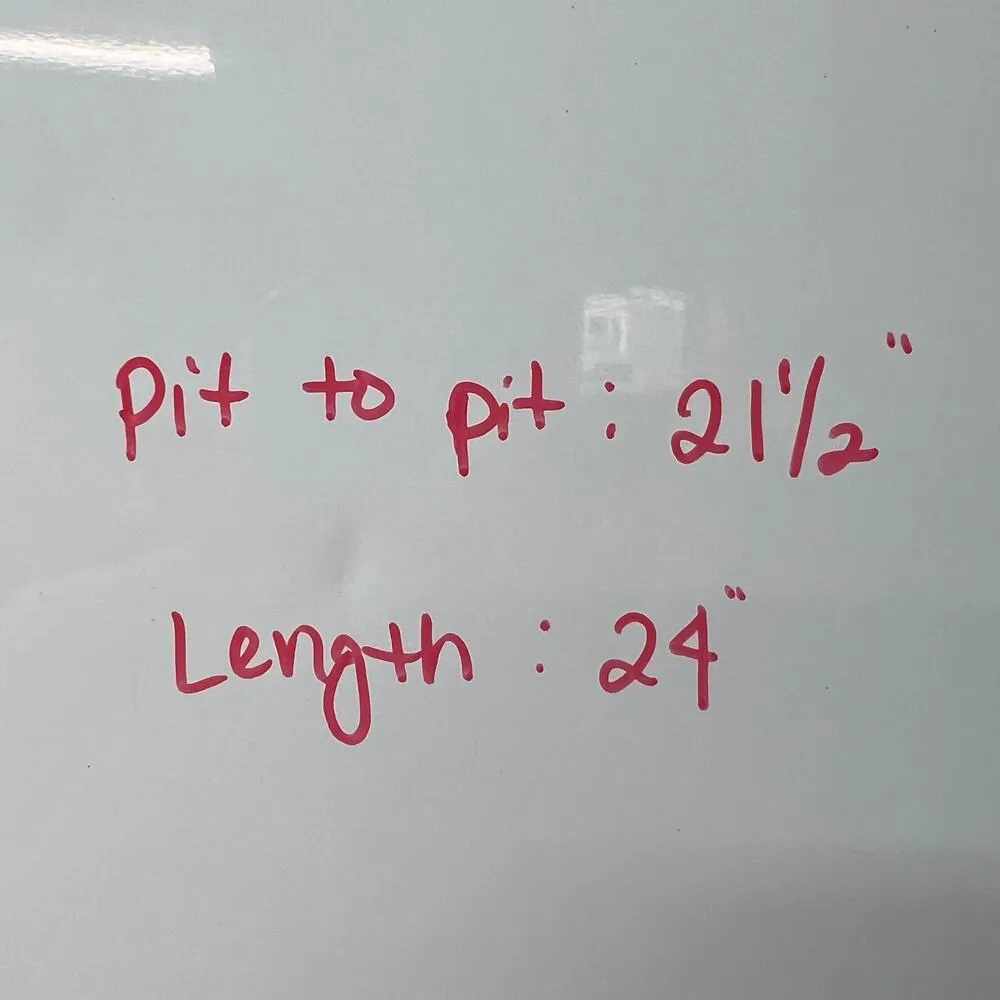 Pit to pit : 21 1/2"
Length : 24"